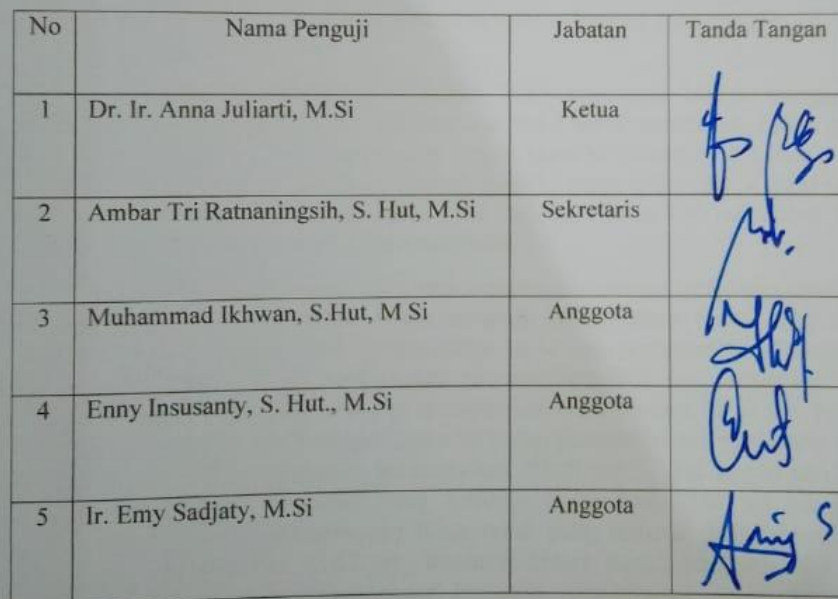 No Nama Penguji Jabatan Tanda Tangan
1 Dr. Ir. Anna Juliarti, M.Si Ketua
2 Ambar Tri Ratnaningsih, S. Hut, M.Si Sekretaris
3 Muhammad Ikhwan, S.Hut, M Si Anggota
4 Enny Insusanty, S. Hut., M.Si Anggota
5 Ir. Emy Sadjaty, M.Si Anggota